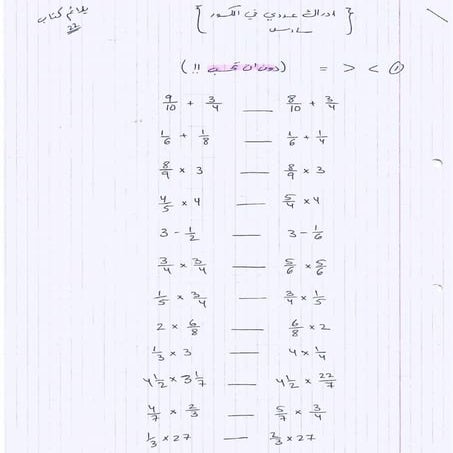 يلائم كتاب
[ ادراك عددي في الكسور ]
سادس
① < > = (دون ان تحسب !!)
9/10 + 3/4 ___ 8/10 + 3/4
1/6 + 1/8 ___ 1/6 + 1/4
8/9 × 3 ___ 8/9 × 3
4/5 × 4 ___ 5/4 × 4
3 - 1/2 ___ 3 - 1/6
3/4 × 3/4 ___ 5/6 × 5/6
1/5 × 3/4 ___ 3/4 × 1/5
2 × 6/8 ___ 6/8 × 2
1/3 × 3 ___ 4 × 1/4
4 1/2 × 3 1/7 ___ 4 1/2 × 22/7
4/7 × 2/3 ___ 5/7 × 3/4
1/3 × 27 ___ 2/3 × 27